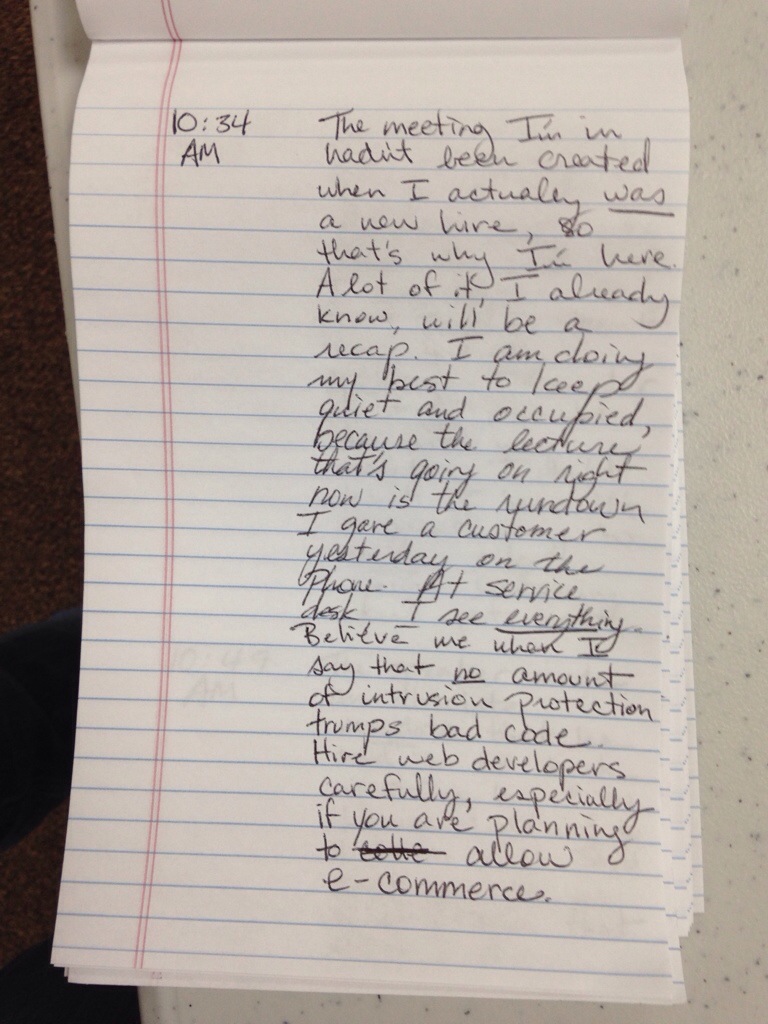 10:34 The meeting I'm in
AM hadn't been created
when I actually was
a new hire, so
that's why I'm here.
A lot of it, I already
know, will be a
recap. I am doing
my best to keep
quiet and occupied,
because the lecture
that's going on right
now is the rundown
I gave a customer
yesterday on the
phone. At service
desk I see everything.
Believe me when I
say that no amount
of intrusion protection
trumps bad code.
Hire web developers
carefully, especially
if you are planning
to allow
e-commerce.